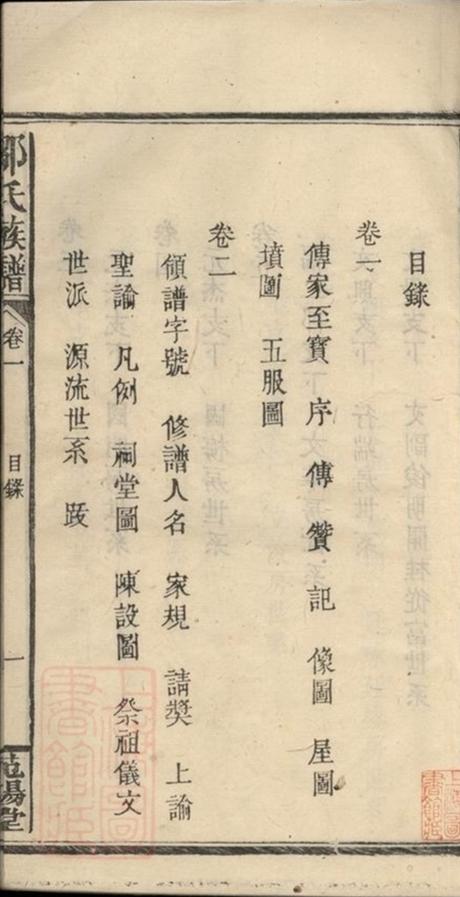 目錄
卷一
傳家至寶 序 傳 贊 記 像圖 屋圖
墳圖 五服圖
卷二
領譜字號 修譜人名 家規 請獎 上諭
聖諭 凡例 祠堂圖 陳設圖 祭祖儀文
世派 源流世系 跋
鄒氏族譜 卷一 目錄 一 范陽堂